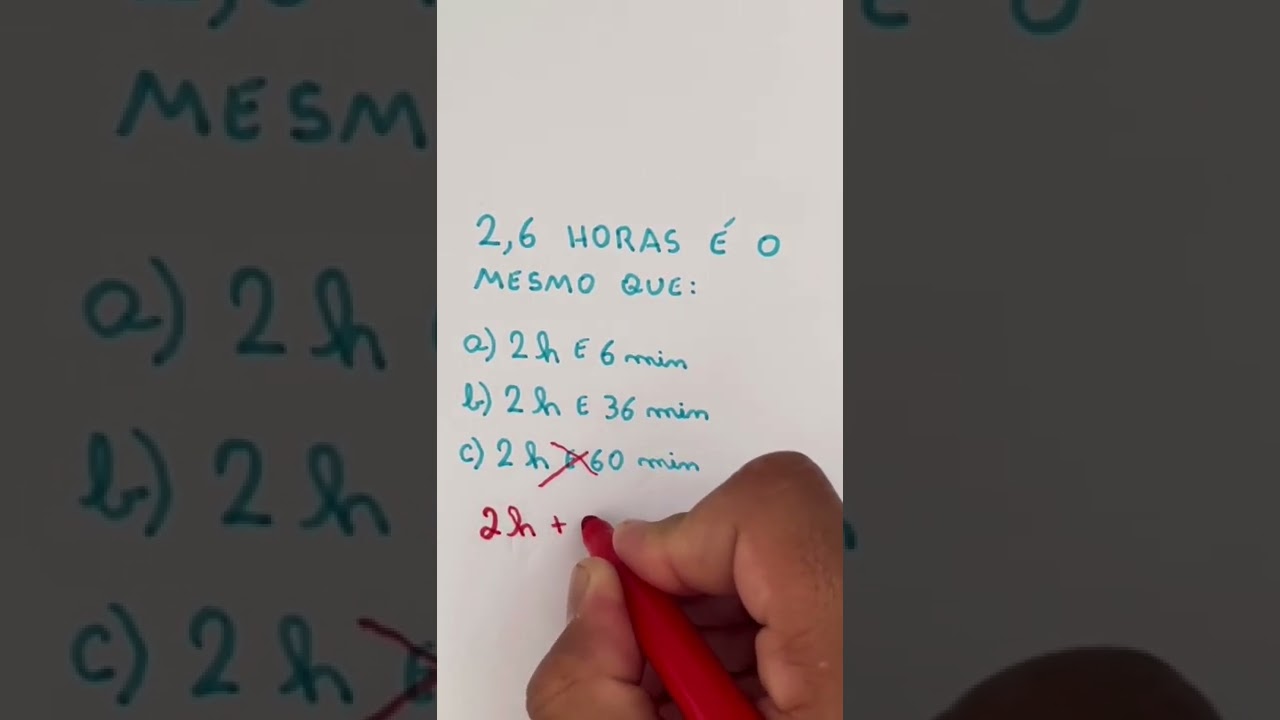 2,6 HORAS É O
MESMO QUE:
a) 2h E 6 min
b) 2h E 36 min
c) 2h E 60 min
2h +